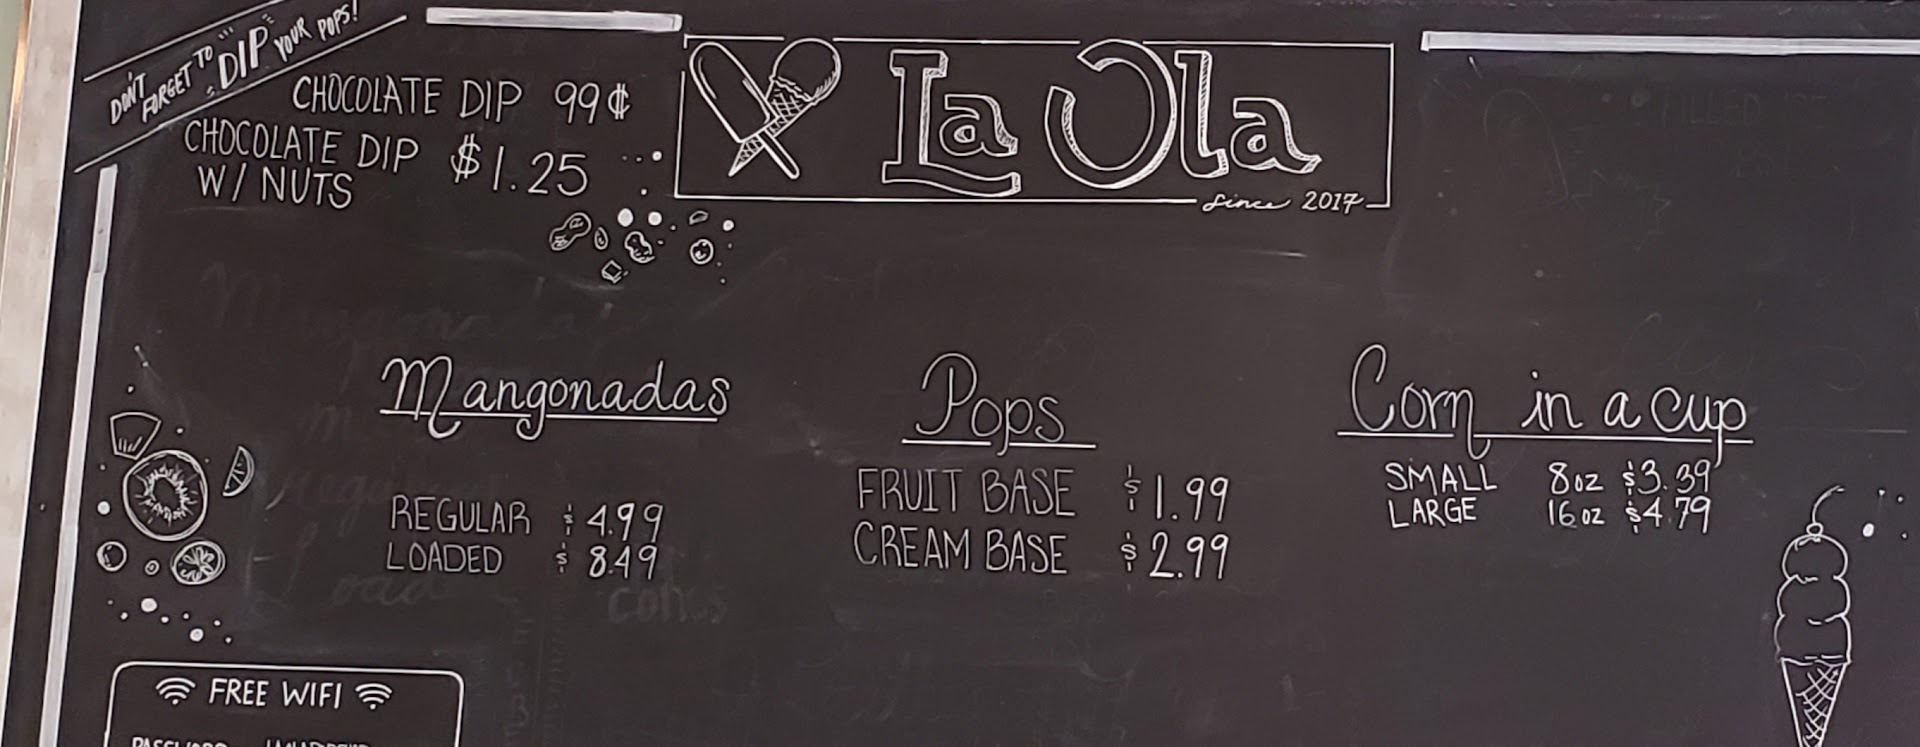 DON'T FORGET TO DIP YOUR POPS!
CHOCOLATE DIP 99¢
CHOCOLATE DIP $1.25
W/ NUTS
La Ola
Since 2017
Mangonadas
REGULAR $4.99
LOADED $8.49
Pops
FRUIT BASE $1.99
CREAM BASE $2.99
Corn in a cup
SMALL 8oz $3.39
LARGE 16oz $4.79
FREE WIFI
PASSWORD